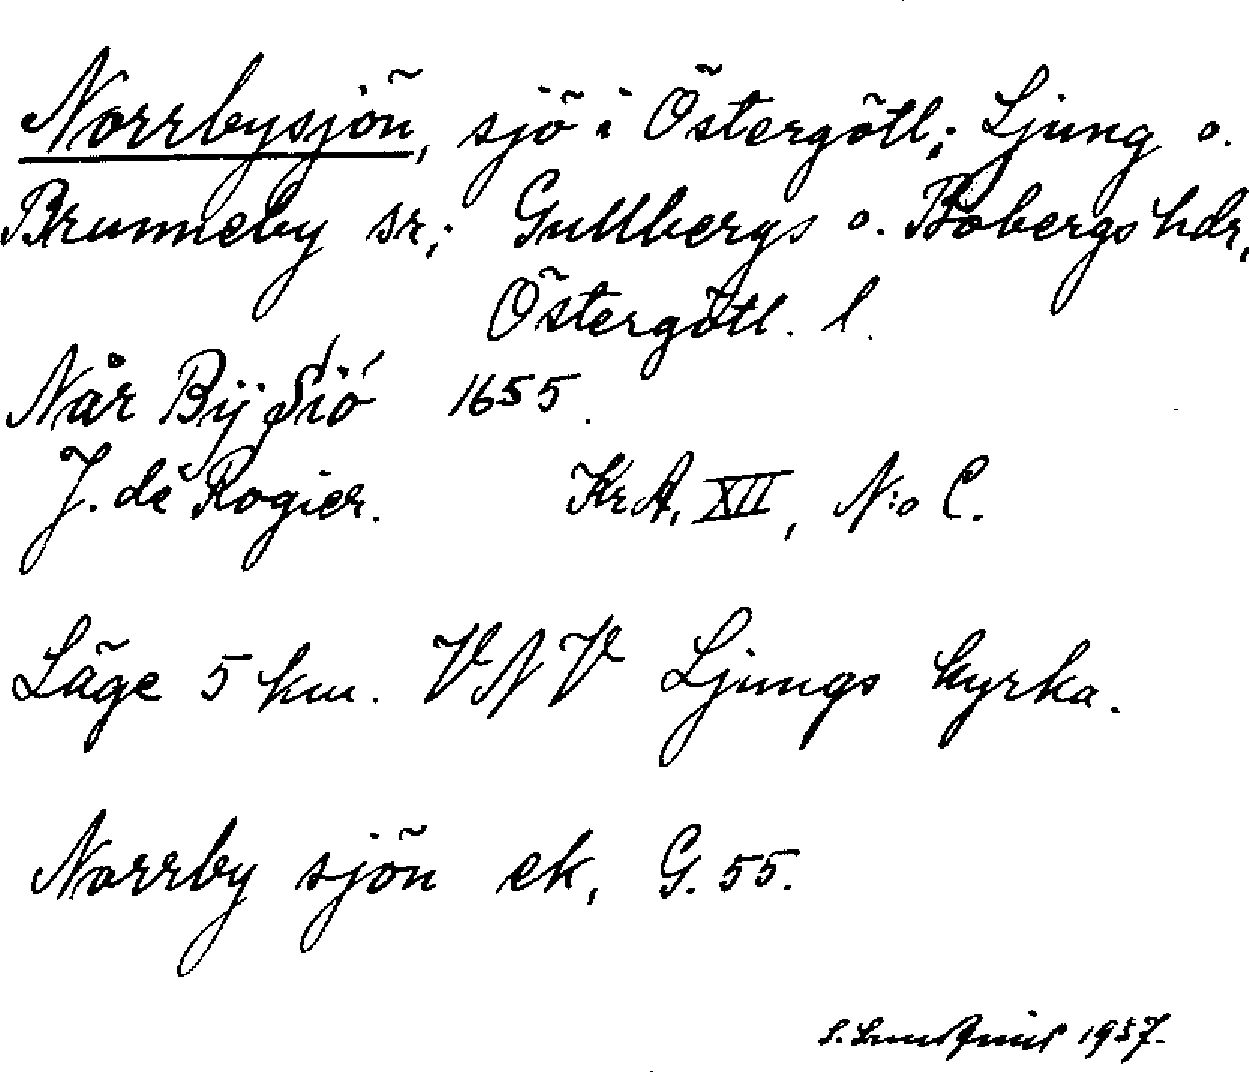 Norrbysjön, sjö i Östergötl.; Ljung o.
Brunneby sr.; Gullbergs o. Bobergs hdr,
Östergötl. l.
Når Bÿ Sió 1655.
J. de Rogier. KrA, XII, N:o C.
Läge 5 km. VNV Ljungs kyrka.
Norrby sjön ek, G. 55.
S. 1937.